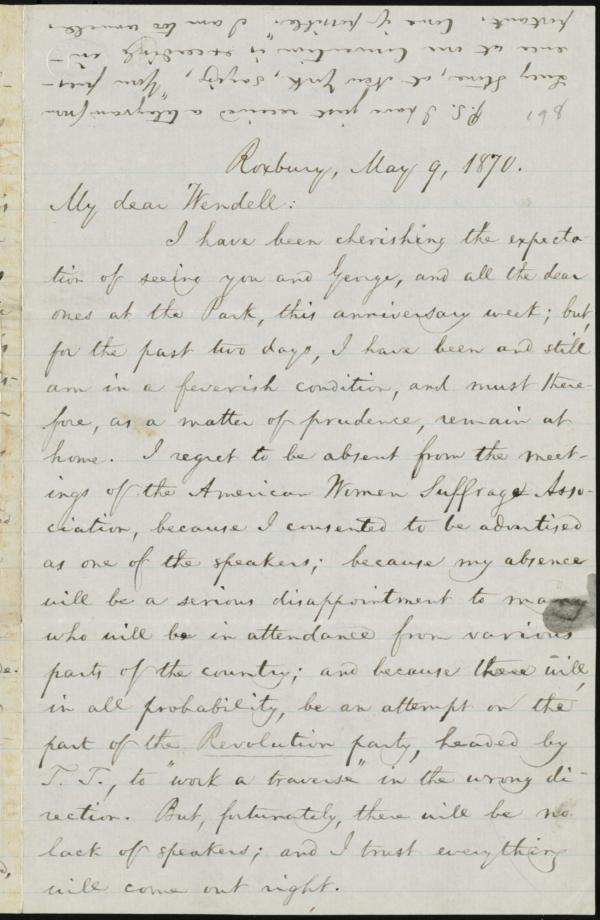 P.S. I have just received a telegram from
Lucy Stone, at New York, saying, "Your pres-
ence at our Convention is exceeding im-
portant. Come if possible." I am too unwell.
Roxbury, May 9, 1870.
My dear Wendell:
I have been cherishing the expecta-
tion of seeing you and George, and all the dear
ones at the Park, this anniversary week; but,
for the past two days, I have been and still
am in a feverish condition, and must there-
fore, as a matter of prudence, remain at
home. I regret to be absent from the meet-
ings of the American Women Suffrage Asso-
ciation, because I consented to be advertised
as one of the speakers; because my absence
will be a serious disappointment to many
who will be in attendance from various
parts of the country; and because there will,
in all probability, be an attempt on the
part of the Revolution party, headed by
T. T., to "work a traverse" in the wrong di-
rection. But, fortunately, there will be no
lack of speakers; and I trust everything
will come out right.